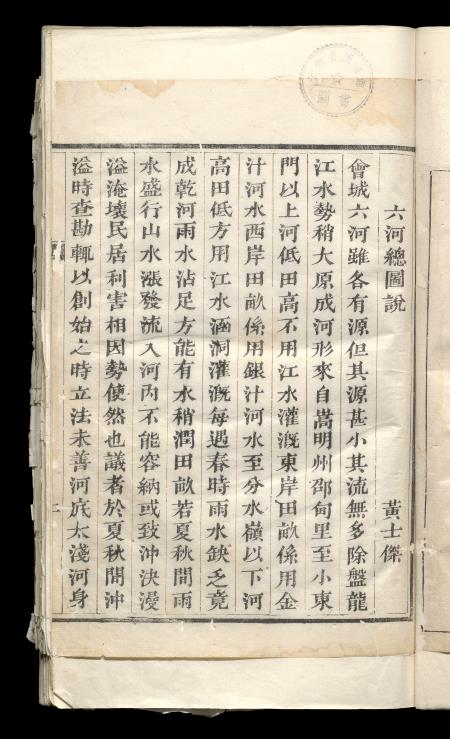 六河總圖說 黃士傑
會城六河雖各有源但其源甚小其流無多除盤龍
江水勢稍大原成河形來自嵩明州邵甸里至小東
門以上河低田高不用江水灌溉東岸田畝係用金
汁河水西岸田畝係用銀汁河水至分水嶺以下河
高田低方用江水涵洞灌溉每遇春時雨水缺乏竟
成乾河雨水沾足方能有水稍潤田畝若夏秋間雨
水盛行山水漲發流入河內不能容納或致沖決漫
溢淹壞民居利害相因勢使然也議者於夏秋間沖
溢時查勘輒以創始之時立法未善河底太淺河身